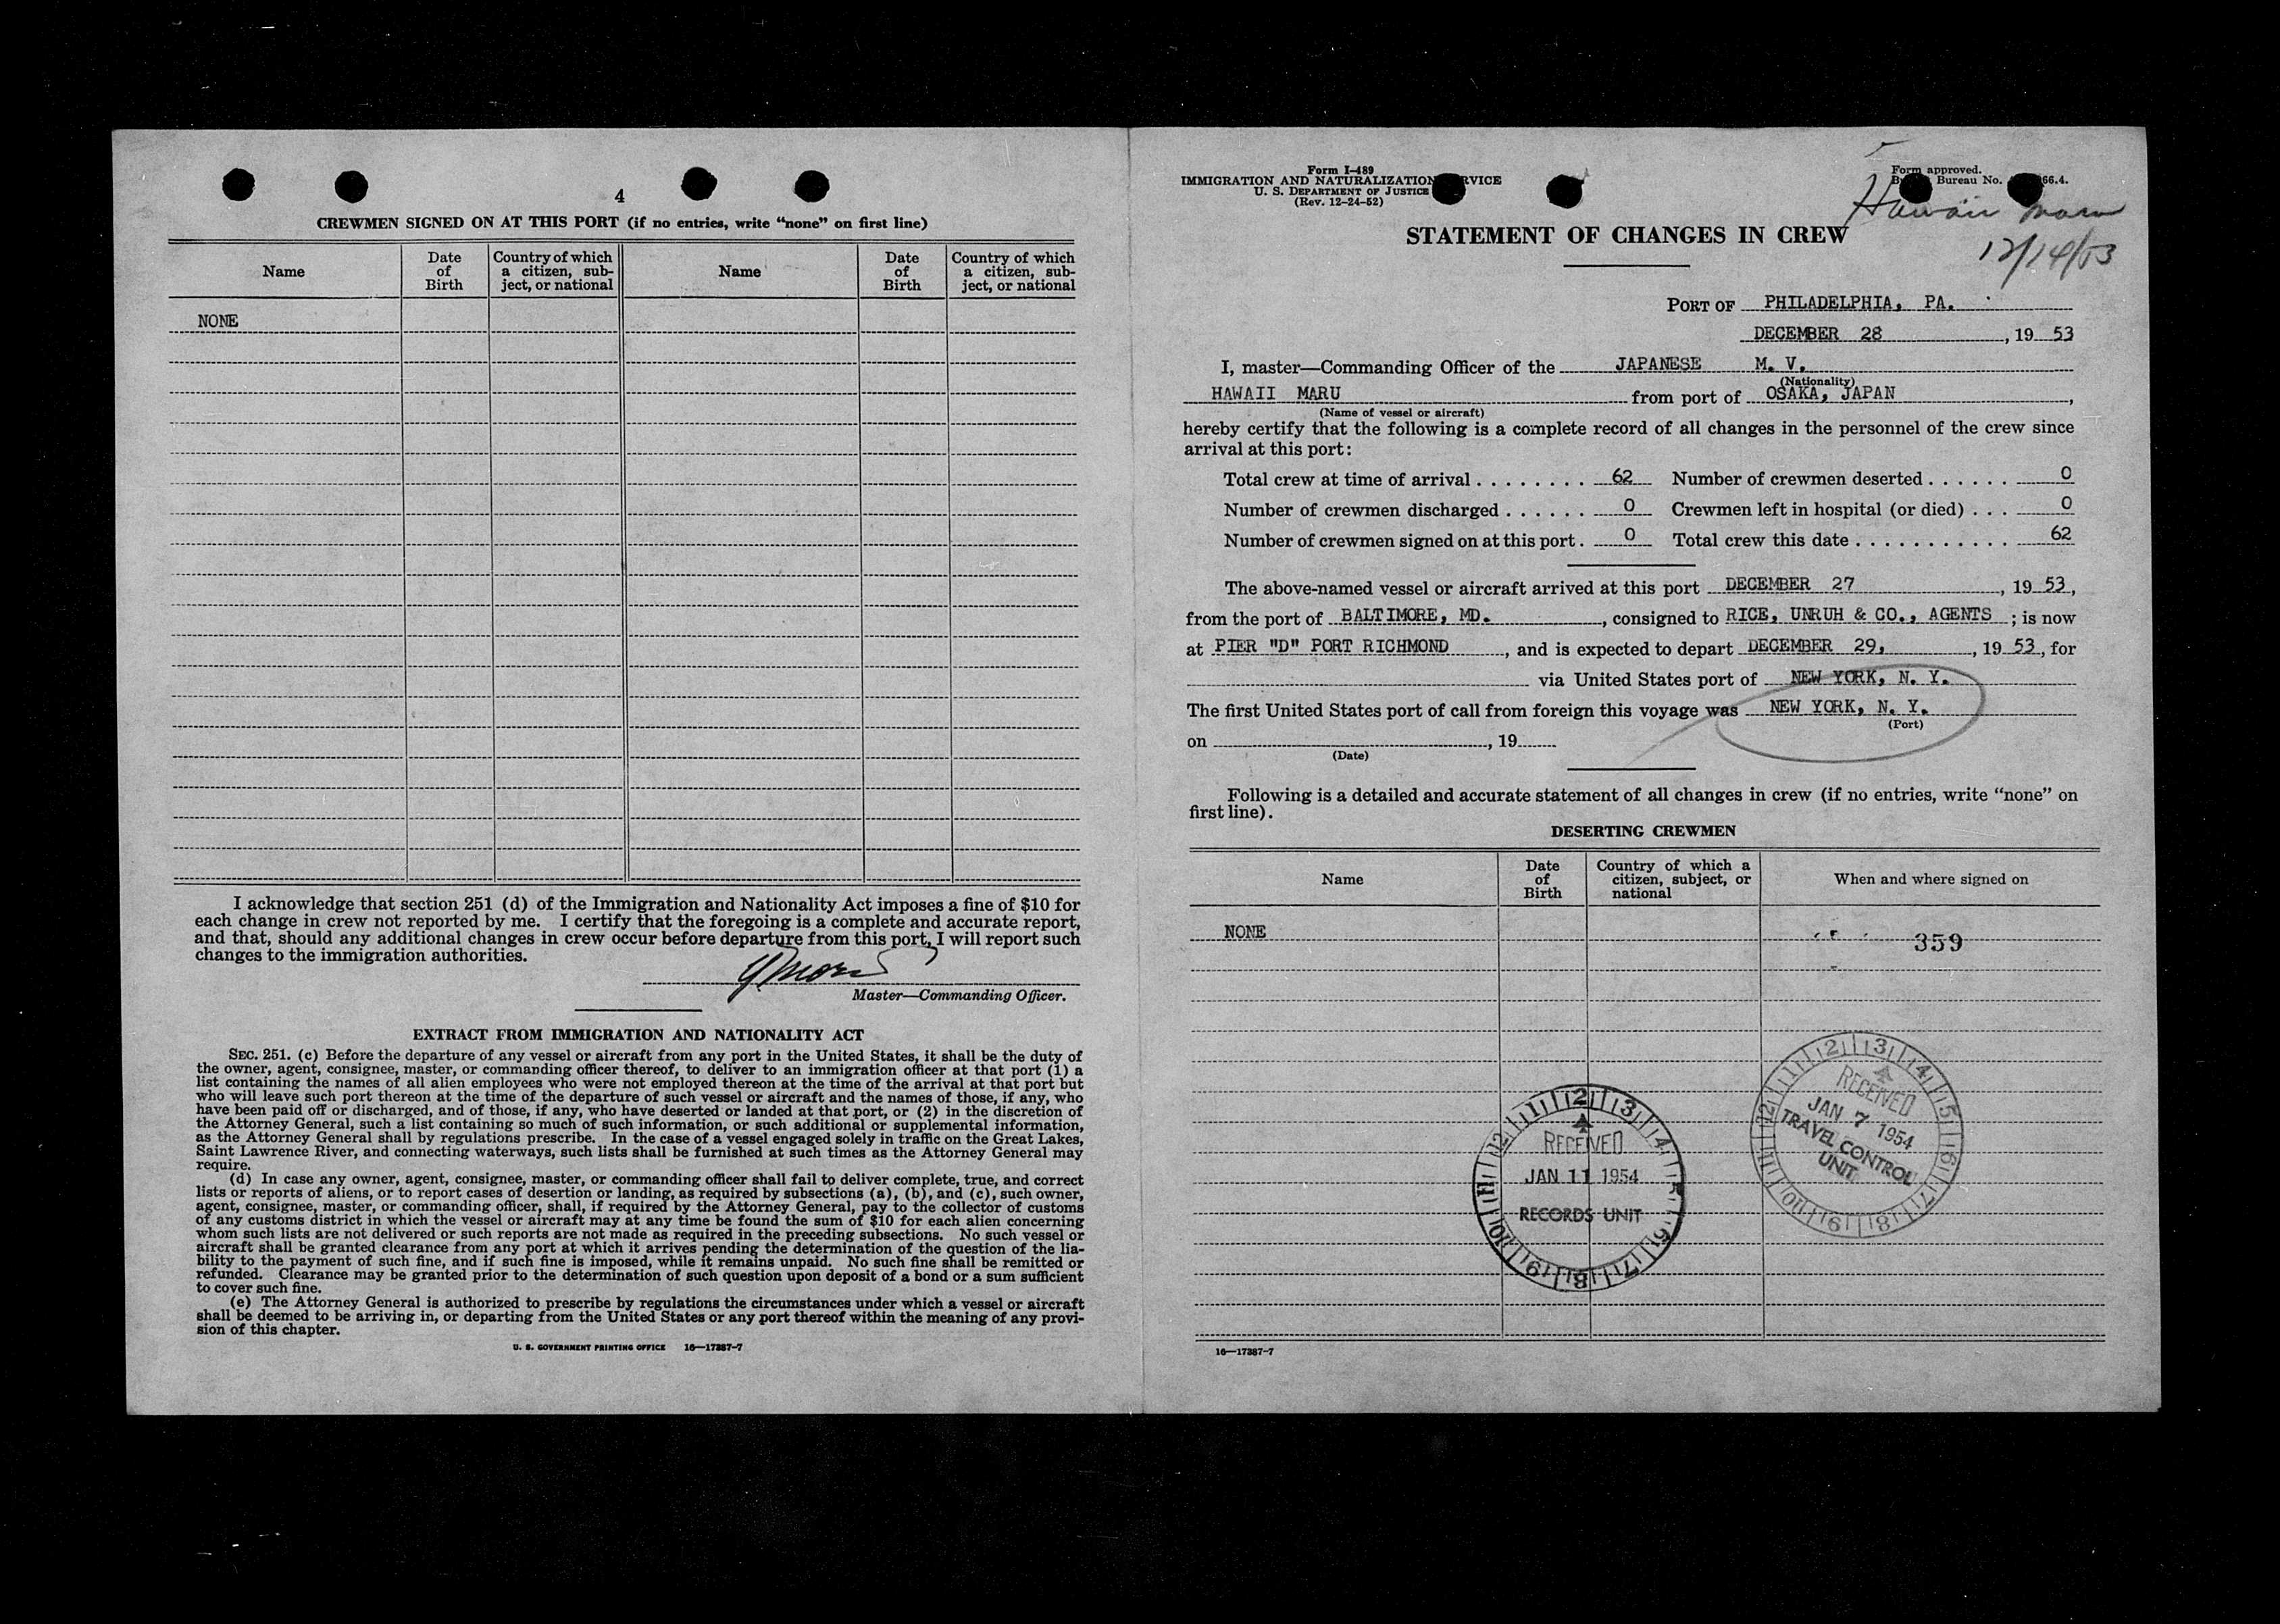 4
CREWMEN SIGNED ON AT THIS PORT (if no entries, write “none” on first line)
Name
Date of Birth
Country of which a citizen, subject, or national
Name
Date of Birth
Country of which a citizen, subject, or national
NONE
I acknowledge that section 251 (d) of the Immigration and Nationality Act imposes a fine of $10 for
each change in crew not reported by me. I certify that the foregoing is a complete and accurate report,
and that, should any additional changes in crew occur before departure from this port, I will report such
changes to the immigration authorities.
Master—Commanding Officer.
EXTRACT FROM IMMIGRATION AND NATIONALITY ACT
SEC. 251. (c) Before the departure of any vessel or aircraft from any port in the United States, it shall be the duty of
the owner, agent, consignee, master, or commanding officer thereof, to deliver to an immigration officer at that port (1) a
list containing the names of all alien employees who were not employed thereon at the time of the arrival at that port but
who will leave such port thereon at the time of the departure of such vessel or aircraft and the names of those, if any, who
have been paid off or discharged, and of those, if any, who have deserted or landed at that port, or (2) in the discretion of
the Attorney General, such a list containing so much of such information, or such additional or supplemental information,
as the Attorney General shall by regulations prescribe. In the case of a vessel engaged solely in traffic on the Great Lakes,
Saint Lawrence River, and connecting waterways, such lists shall be furnished at such times as the Attorney General may
require.
(d) In case any owner, agent, consignee, master, or commanding officer shall fail to deliver complete, true, and correct
lists or reports of aliens, or to report cases of desertion or landing, as required by subsections (a), (b), and (c), such owner,
agent, consignee, master, or commanding officer, shall, if required by the Attorney General, pay to the collector of customs
of any customs district in which the vessel or aircraft may at any time be found the sum of $10 for each alien concerning
whom such lists are not delivered or such reports are not made as required in the preceding subsections. No such vessel or
aircraft shall be granted clearance from any port at which it arrives pending the determination of the question of the lia-
bility to the payment of such fine, and if such fine is imposed, while it remains unpaid. No such fine shall be remitted or
refunded. Clearance may be granted prior to the determination of such question upon deposit of a bond or a sum sufficient
to cover such fine.
(e) The Attorney General is authorized to prescribe by regulations the circumstances under which a vessel or aircraft
shall be deemed to be arriving in, or departing from the United States or any port thereof within the meaning of any provi-
sion of this chapter.
U. S. GOVERNMENT PRINTING OFFICE 16—17387-7
Form I-489
IMMIGRATION AND NATURALIZATION RVICE
U. S. DEPARTMENT OF JUSTICE
(Rev. 12-24-52)
Form approved.
Bureau No. 66.4.
Hawaii Maru
12/14/53
STATEMENT OF CHANGES IN CREW
PORT OF PHILADELPHIA, PA.
DECEMBER 28, 19 53
I, master—Commanding Officer of the JAPANESE M. V.
(Nationality)
HAWAII MARU from port of OSAKA, JAPAN,
(Name of vessel or aircraft)
hereby certify that the following is a complete record of all changes in the personnel of the crew since
arrival at this port:
Total crew at time of arrival . . . . . . . . 62 Number of crewmen deserted . . . . . . 0
Number of crewmen discharged . . . . . . 0 Crewmen left in hospital (or died) . . . 0
Number of crewmen signed on at this port. 0 Total crew this date . . . . . . . . . . . 62
The above-named vessel or aircraft arrived at this port DECEMBER 27, 19 53,
from the port of BALTIMORE, MD., consigned to RICE, UNRUH & CO., AGENTS ; is now
at PIER "D" PORT RICHMOND, and is expected to depart DECEMBER 29, , 19 53, for
via United States port of NEW YORK, N. Y.
The first United States port of call from foreign this voyage was NEW YORK, N. Y.
(Port)
on , 19
(Date)
Following is a detailed and accurate statement of all changes in crew (if no entries, write “none” on
first line).
DESERTING CREWMEN
Name
Date of Birth
Country of which a citizen, subject, or national
When and where signed on
NONE
359
RECEIVED
JAN 7 1954
TRAVEL CONTROL
UNIT
RECEIVED
JAN 11 1954
RECORDS UNIT
16—17387-7